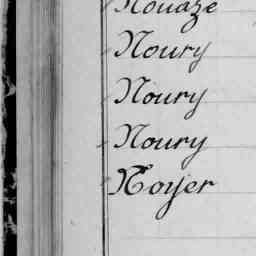 Nouaze
Noury
Noury
Noury
Noyer